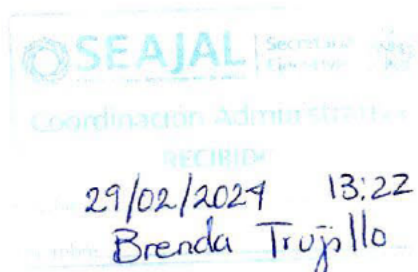 SEAJAL Secretaría Ejecutiva
Coordinación Administrativa
RECIBIDO
29/02/2024 13:22
Brenda Trujillo